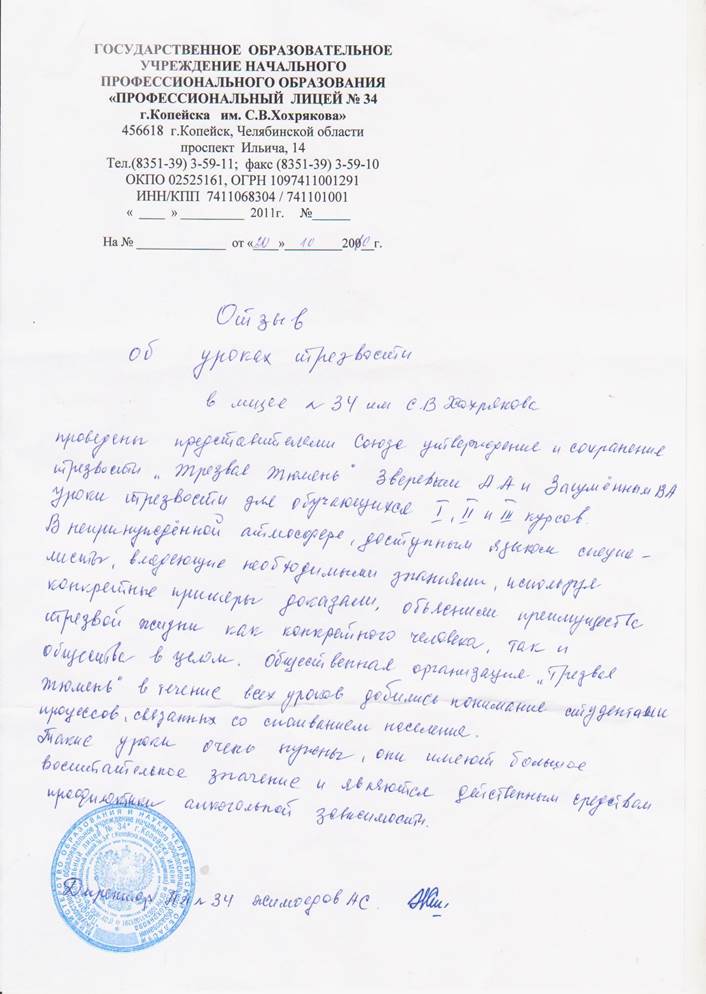 ГОСУДАРСТВЕННОЕ ОБРАЗОВАТЕЛЬНОЕ
УЧРЕЖДЕНИЕ НАЧАЛЬНОГО
ПРОФЕССИОНАЛЬНОГО ОБРАЗОВАНИЯ
«ПРОФЕССИОНАЛЬНЫЙ ЛИЦЕЙ № 34
г.Копейска им. С.В.Хохрякова»
456618 г.Копейск, Челябинской области
проспект Ильича, 14
Тел.(8351-39) 3-59-11; факс (8351-39) 3-59-10
ОКПО 02525161, ОГРН 1097411001291
ИНН/КПП 7411068304 / 741101001
« ____ » __________ 2011г. №______
На № ______________ от «20» 10 200 г.
Отзыв
об уроках трезвости
в лицее № 34 им С.В Хохрякова
проведены представителями Союза утверждение и сохранение
трезвости „Трезвая Тюмень" Зверевым А А и Загумённым ВА
Уроки трезвости для обучающихся I, II и III курсов.
В непринуждённой атмосфере, доступным языком специа-
листы, владеющие необходимыми знаниями, используя
конкретные примеры доказали, объяснили преимущества
трезвой жизни как конкретного человека, так и
общества в целом. Общественная организация „Трезвая
Тюмень" в течение всех уроков добились понимание студентами
процессов, связанных со спаиванием населения.
Такие уроки очень нужны, они имеют большое
воспитательное значение и являются действенным средством
профилактики алкогольной зависимости.
Директор № 34 АС.